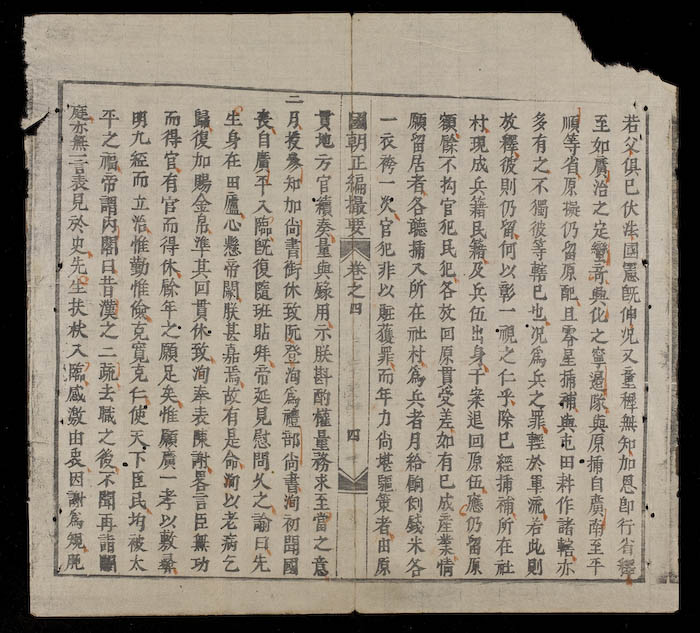 若父俱已伏法國憲既伸况又童穉無知加恩卽行省釋
至如廣治之定蠻奇興化之寧邊隊與原捕自廣南至平
順等省原擬仍留原配且零星捕補與屯田耕作諸轄亦
多有之不獨彼等轄已也况爲兵之罪輕於軍流若此則
故釋彼則仍留何以彰一視之仁乎除已經捕補所在社
村現成兵籍民籍及兵伍出身干案退回原伍應仍留原
額餘不拘官犯民犯各放回原貫受差如有已成產業情
願留居者各聽捕入所在社村爲兵者月給餉例錢米各
一衣袴一次官犯非以贓獲罪而年力尚堪驅策者由原
國朝正編撮要 卷之四 四
貫地方官續奏量與錄用示朕斟酌權量務求至當之意
二月授參知加尚書銜休致阮登洵爲禮部尚書洵初聞國
喪自廣平入臨既復隨班貼拜帝延見慰問久之諭曰先
生身在田廬心懸帝闕朕甚嘉焉故有是命洵以老病乞
歸復加賜金帛準其回貫休致洵奉表陳謝畧言臣無功
而得官有官而得休餘年之願足矣惟願廣一孝以敷
明九經而立治惟勤惟儉克寬克仁使天下臣民均被太
平之福帝謂內閣曰昔漢之二疏去職之後不聞再詣闕
庭亦無一言表見於史先生扶杖入臨感激由衷因謝爲規